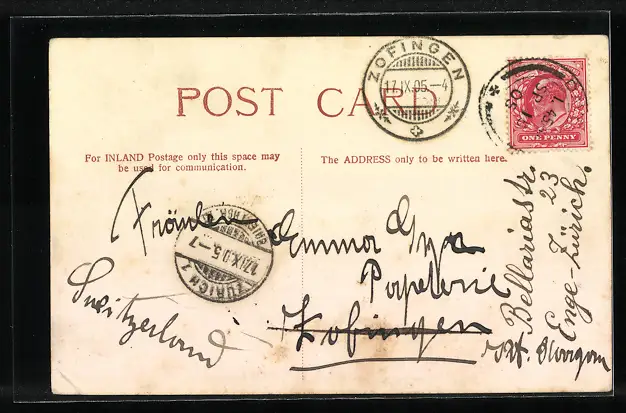 POST CARD
For INLAND Postage only this space may
be used for communication.
The ADDRESS only to be written here.
ZOFINGEN
17.IX.05.—4
ONE PENNY
Fräulein Emma
Papeterie
Zofingen
Switzerland
Bellariastr.
23
Enge-Zürich.
17.IX.05.—7
ZÜRICH 1